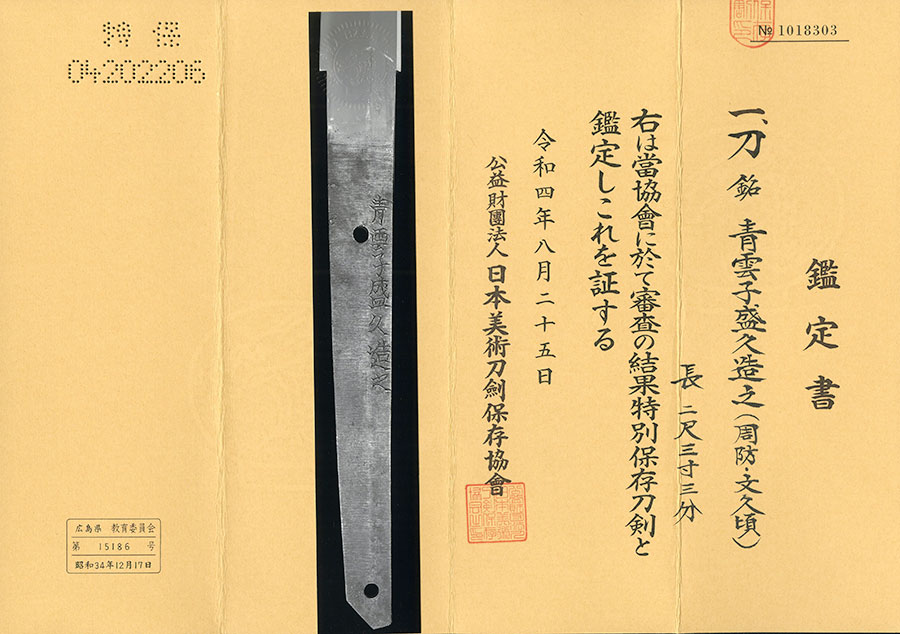 № 1018303
鑑定書
一、刀 銘 青雲子盛久造之(周防・文久頃)
長 二尺三寸三分
右は當協會に於て審査の結果特別保存刀剣と
鑑定しこれを証する
令和四年八月二十五日
公益財團法人 日本美術刀劍保存協會
青雲子盛久造之
特保
04202206
広島県 教育委員会
第 15186 号
昭和34年12月17日